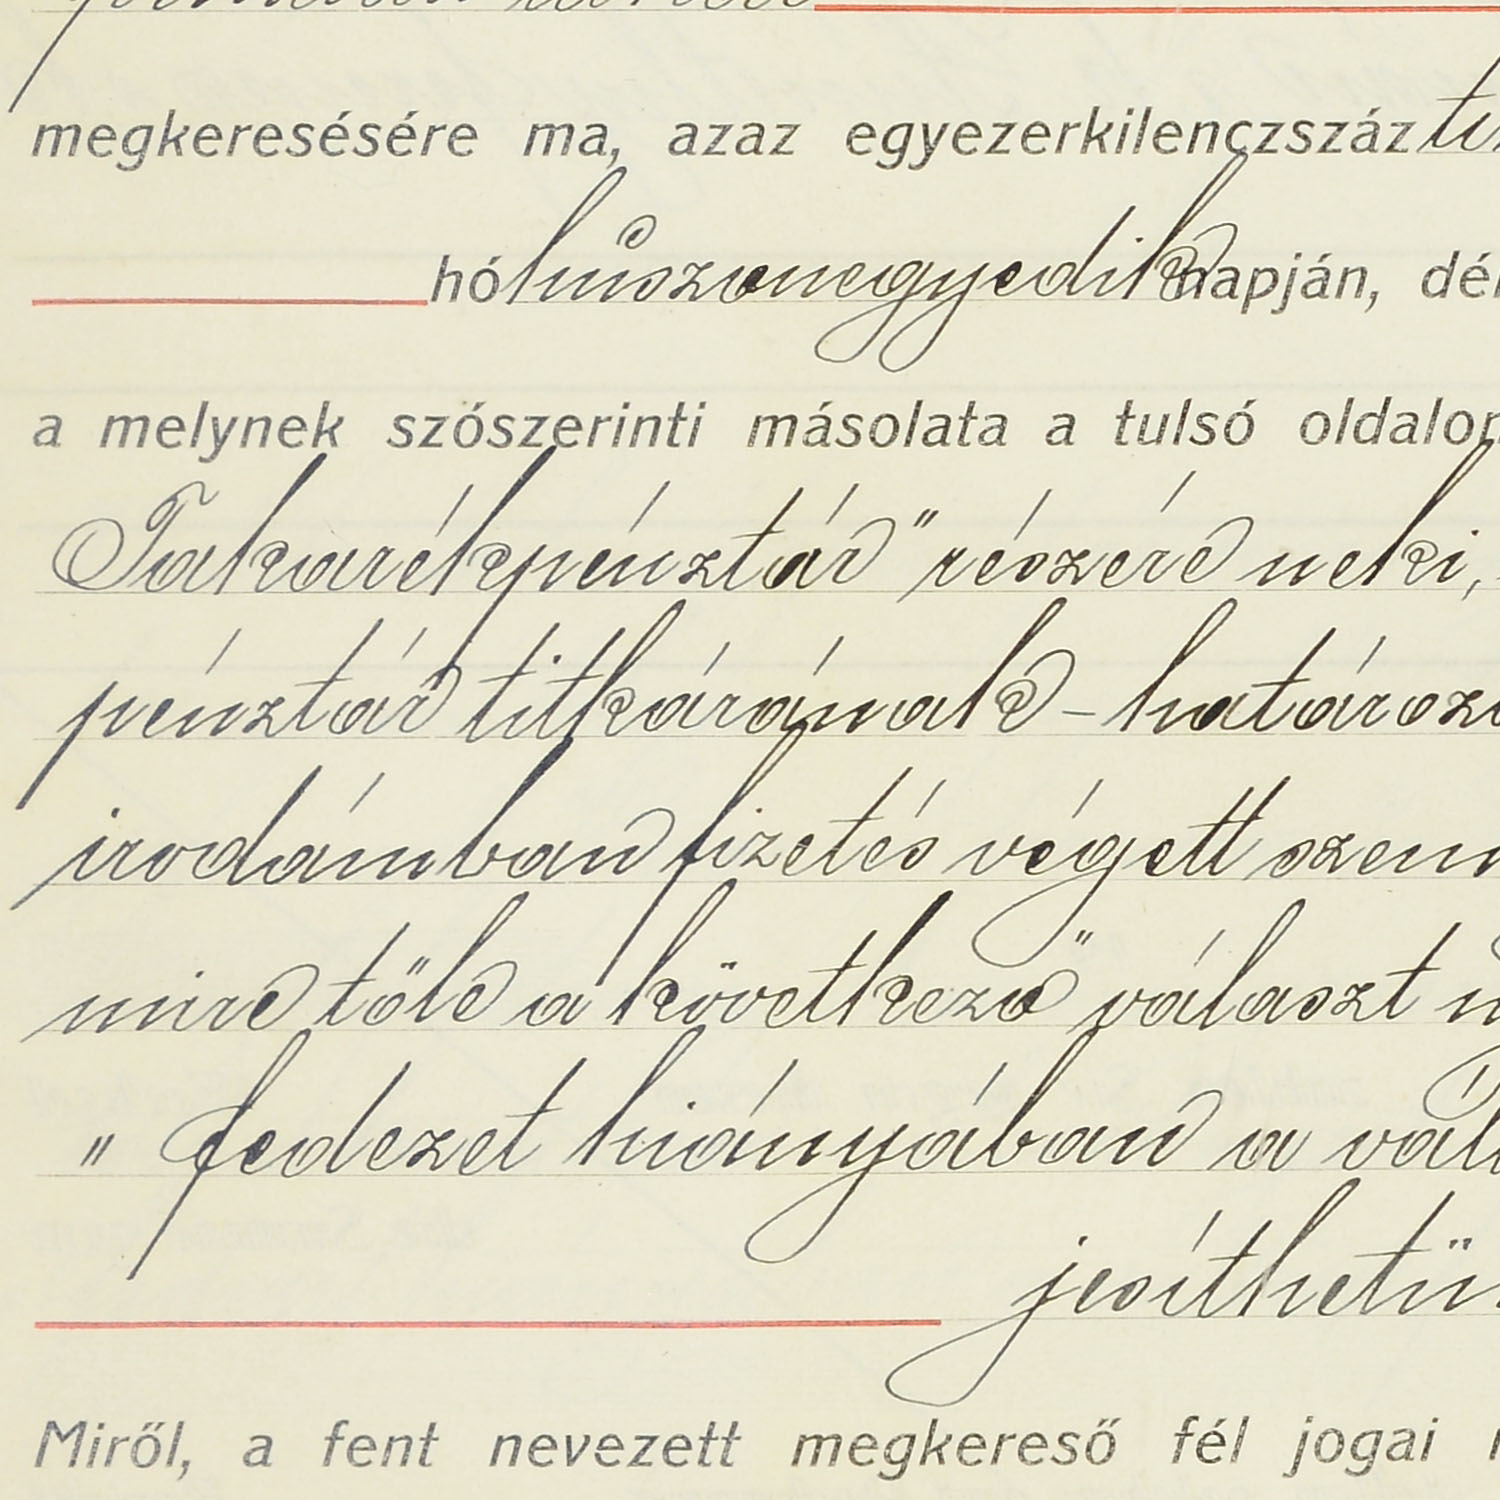 megkeresésére ma, azaz egyezerkilenczszáz
hó huszonegyedik napján, dél
a melynek szószerinti másolata a tulsó oldalon
Takarékpénztár" részére neki,
pénztár titkárának - határozo
irodámban fizetés végett szem
mire tőle a következő választ n
" fedezet hiányában a vált
jesíthetü
Miről, a fent nevezett megkereső fél jogai